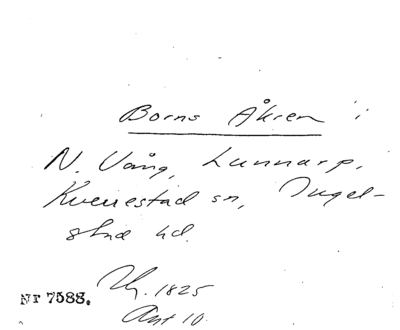 Borns Åkren i
N. Vång, Lunnarp,
Kverrestad sn, Ingel-
stad hd.
Nr 7588. Uh. 1825
Akt 10.